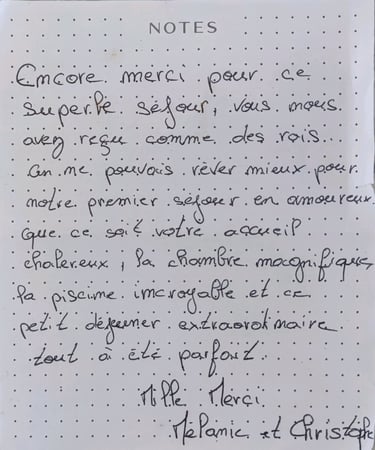 NOTES
Encore merci pour ce
superbe séjour, vous nous
avez reçu comme des rois...
on ne pouvais rêver mieux pour
notre premier séjour en amoureux
que ce soit votre accueil
chalereux, la chambre magnifique,
la piscine incroyable et ce
petit déjeuner extraordinaire
tout à été parfait.
Mille Merci
Mélanie et Christophe